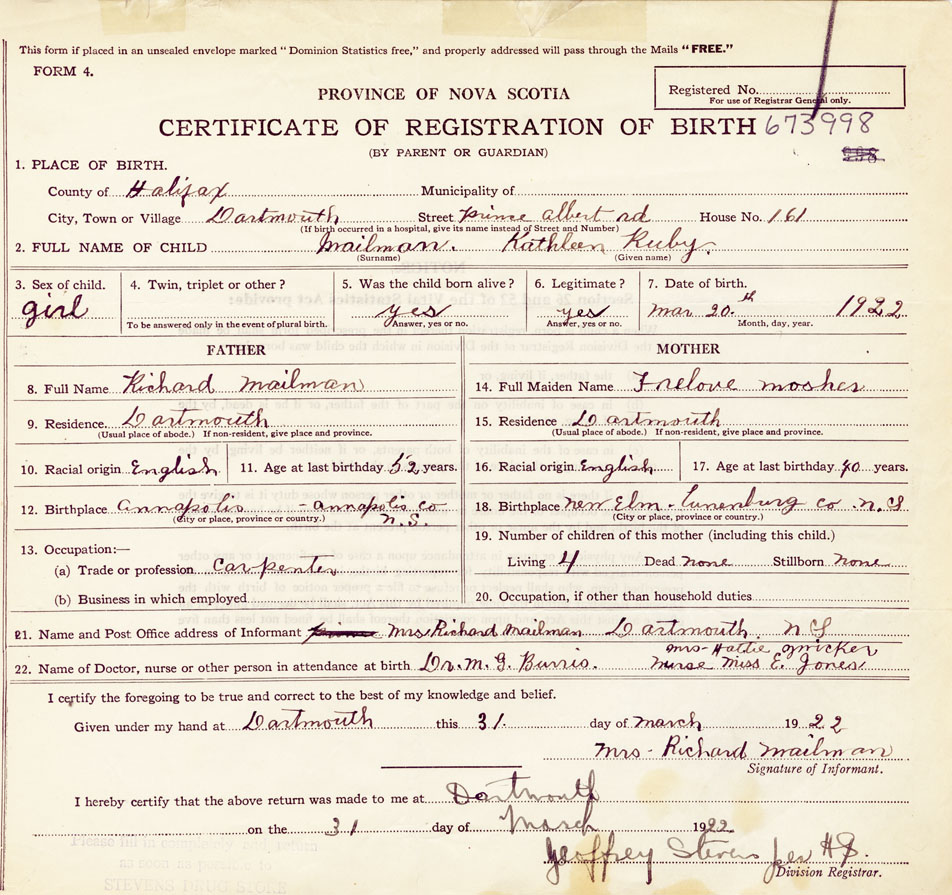 This form if placed in an unsealed envelope marked "Dominion Statistics free," and properly addressed will pass through the Mails "FREE."
FORM 4.
Registered No.
For use of Registrar General only.
PROVINCE OF NOVA SCOTIA
CERTIFICATE OF REGISTRATION OF BIRTH 673998
(BY PARENT OR GUARDIAN)
1. PLACE OF BIRTH.
County of Halifax Municipality of
City, Town or Village Dartmouth Street Prince Albert rd House No. 161
(If birth occurred in a hospital, give its name instead of Street and Number)
2. FULL NAME OF CHILD Mailman. Kathleen Ruby.
(Surname) (Given name)
3. Sex of child. 4. Twin, triplet or other? 5. Was the child born alive? 6. Legitimate? 7. Date of birth.
girl yes yes Mar 20th 1922
To be answered only in the event of plural birth. Answer, yes or no. Answer, yes or no. Month, day, year.
FATHER MOTHER
8. Full Name Richard Mailman 14. Full Maiden Name Frelove Mosher
9. Residence Dartmouth 15. Residence Dartmouth
(Usual place of abode.) If non-resident, give place and province. (Usual place of abode.) If non-resident, give place and province.
10. Racial origin English 11. Age at last birthday 52 years. 16. Racial origin English 17. Age at last birthday 40 years.
12. Birthplace Annapolis - Annapolis co N.S. 18. Birthplace New Elm - Lunenburg co. N.S
(City or place, province or country.) (City or place, province or country.)
13. Occupation:— 19. Number of children of this mother (including this child.)
(a) Trade or profession Carpenter Living 4 Dead none Stillborn none
(b) Business in which employed 20. Occupation, if other than household duties
21. Name and Post Office address of Informant Mrs Richard Mailman Dartmouth. N S
Mrs- Hattie Zwicker
22. Name of Doctor, nurse or other person in attendance at birth Dr. M. G. Burris. Nurse Miss E. Jones
I certify the foregoing to be true and correct to the best of my knowledge and belief.
Given under my hand at Dartmouth this 31. day of March 1922
Mrs - Richard Mailman
Signature of Informant.
I hereby certify that the above return was made to me at Dartmouth
on the 31 day of March 1922
Geoffrey Stevens
Division Registrar.
Please fill in completely and return
as soon as possible to
STEVENS DRUG STORE